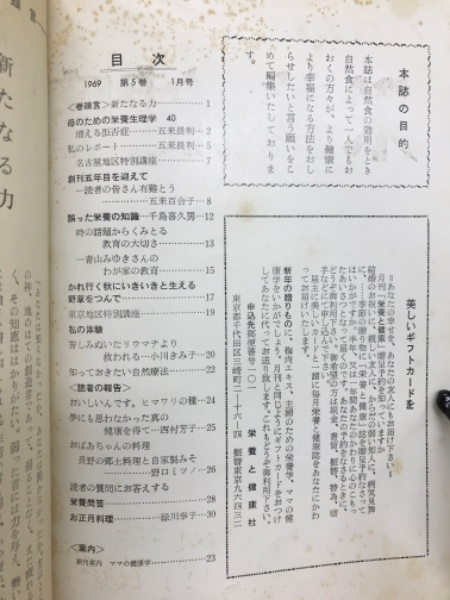 目次
1969 第5巻 1月号
〈巻頭言〉新たなる力 1
母のための栄養生理学 40
増える拒否症……五来長利…2
私のレポート……五来長利…5
名古屋地区特別講座……7
創刊五年目を迎えて
―読者の皆さん有難とう
……五来百合子…8
誤った栄養の知識…千島喜久男…12
時の話題からくみとる
教育の大切さ……13
―青山みゆきさんの
わが家の教育……15
かれ行く秋にいきいきと生える
野草をつんで……17
東京地区特別講座……19
私の体験
苦しみぬいたリウマチより
救われる…小川きみ子…20
知っておきたい自然療法……22
〈読者の報告〉
おいしいんです。ヒマワリの種…24
夢にも思わなかった真の
健康を得て…西村芳子…25
おばあちゃんの料理
長野の郷土料理と自家製みそ
野口ミツノ…26
読者の質問にお答えする
栄養問答……28
お正月料理……30
〈案内〉
新刊案内 ママの健康学……23
本誌の目的
本誌は自然食の効用をとき
自然食によって一人でもお
おくの方々が、より健康に
より幸福になる方法をおし
らせしたいと言う願いをこ
めて編集いたしておりま
す。
美しいギフトカードを
＝あなたの幸せを、あなたの友人にもお届け下さい＝
月刊「栄養と健康」贈呈予約を知っていますか
結婚のお祝いに、親しい友人に、からだの弱い知人に、病気見舞
に、……季節の贈り物に「栄養と健康」誌を贈呈予約なさって
はいかがです。半年、又は一年間あたたかい心のこもっ
たあいさつとなって届くのです。あなたの予約をなさるときに、
どうぞ御利用下さい。御希望の方は現金、書留、振替、
手などにて申し込み下さい。
届主に美しいカードと一諸に毎月栄養と健康誌をあなたにかわ
ってお届けいたします。
新年の贈りものに、梅肉エキス、主婦のための栄養学、ママの健
康学をいかがでしょう。月刊と同じようにギフトカードをおつけ
してあなたに代ってお送り致します。これもどうぞ御利用下さい。
申込先郵便番号一〇一 栄養と健康社
東京都千代田区三崎町二―十六―四 振替東京九六四三二
新たなる力